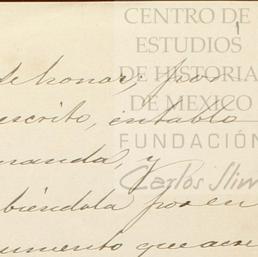 CENTRO DE
ESTUDIOS
DE HISTORIA
DE MEXICO
FUNDACIÓN
Carlos Slim
1
de honor; por
escrito, entabló
manda, y
biéndola por en
umento que acre